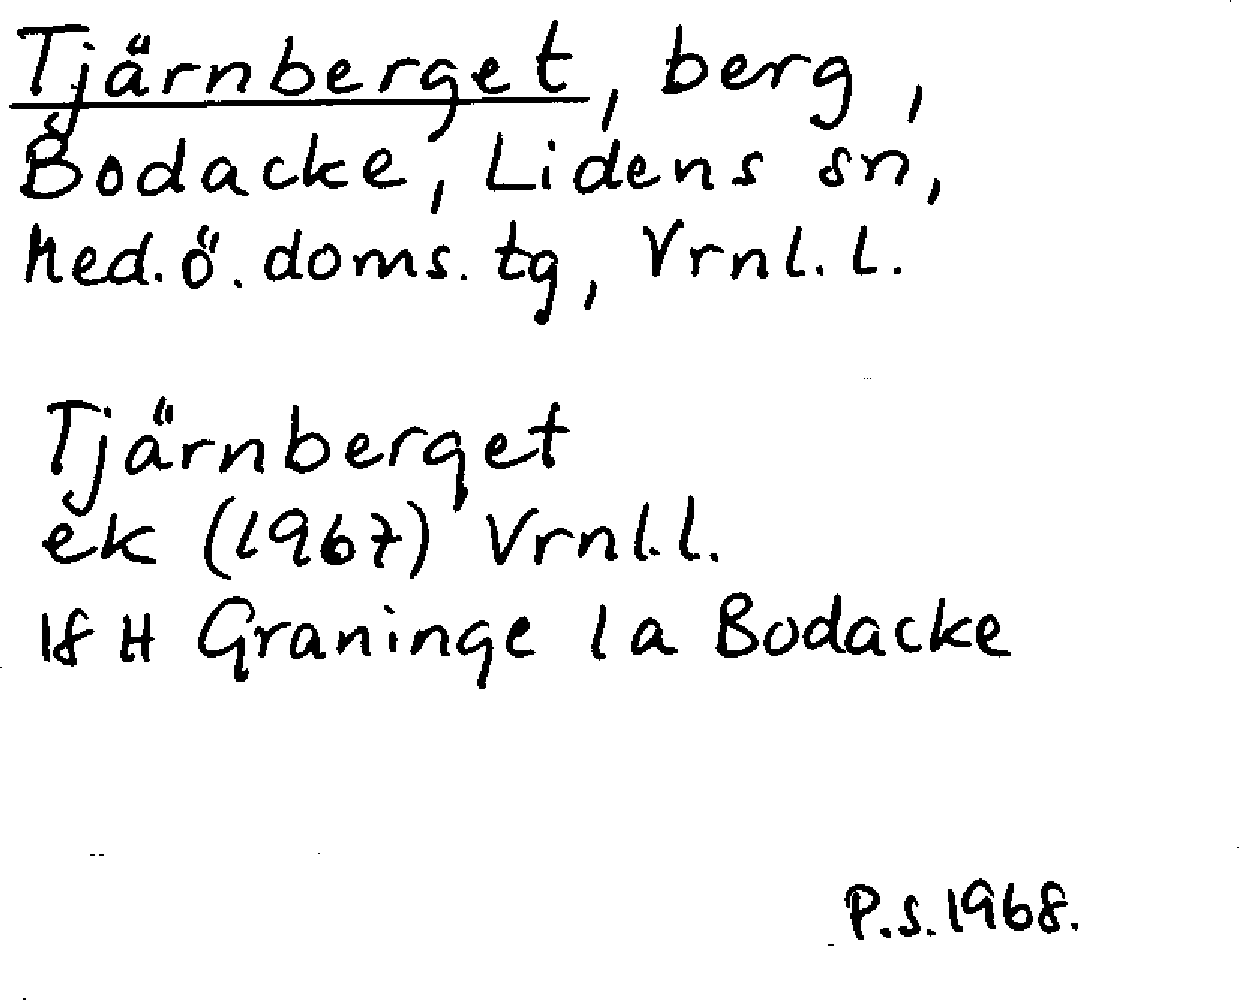 Tjärnberget, berg,
Bodacke, Lidens sn,
Med.ö. doms. tg, Vrnl. l.
Tjärnberget
ek (1967) Vrnl. l.
18 H Graninge 1a Bodacke
P.S. 1968.